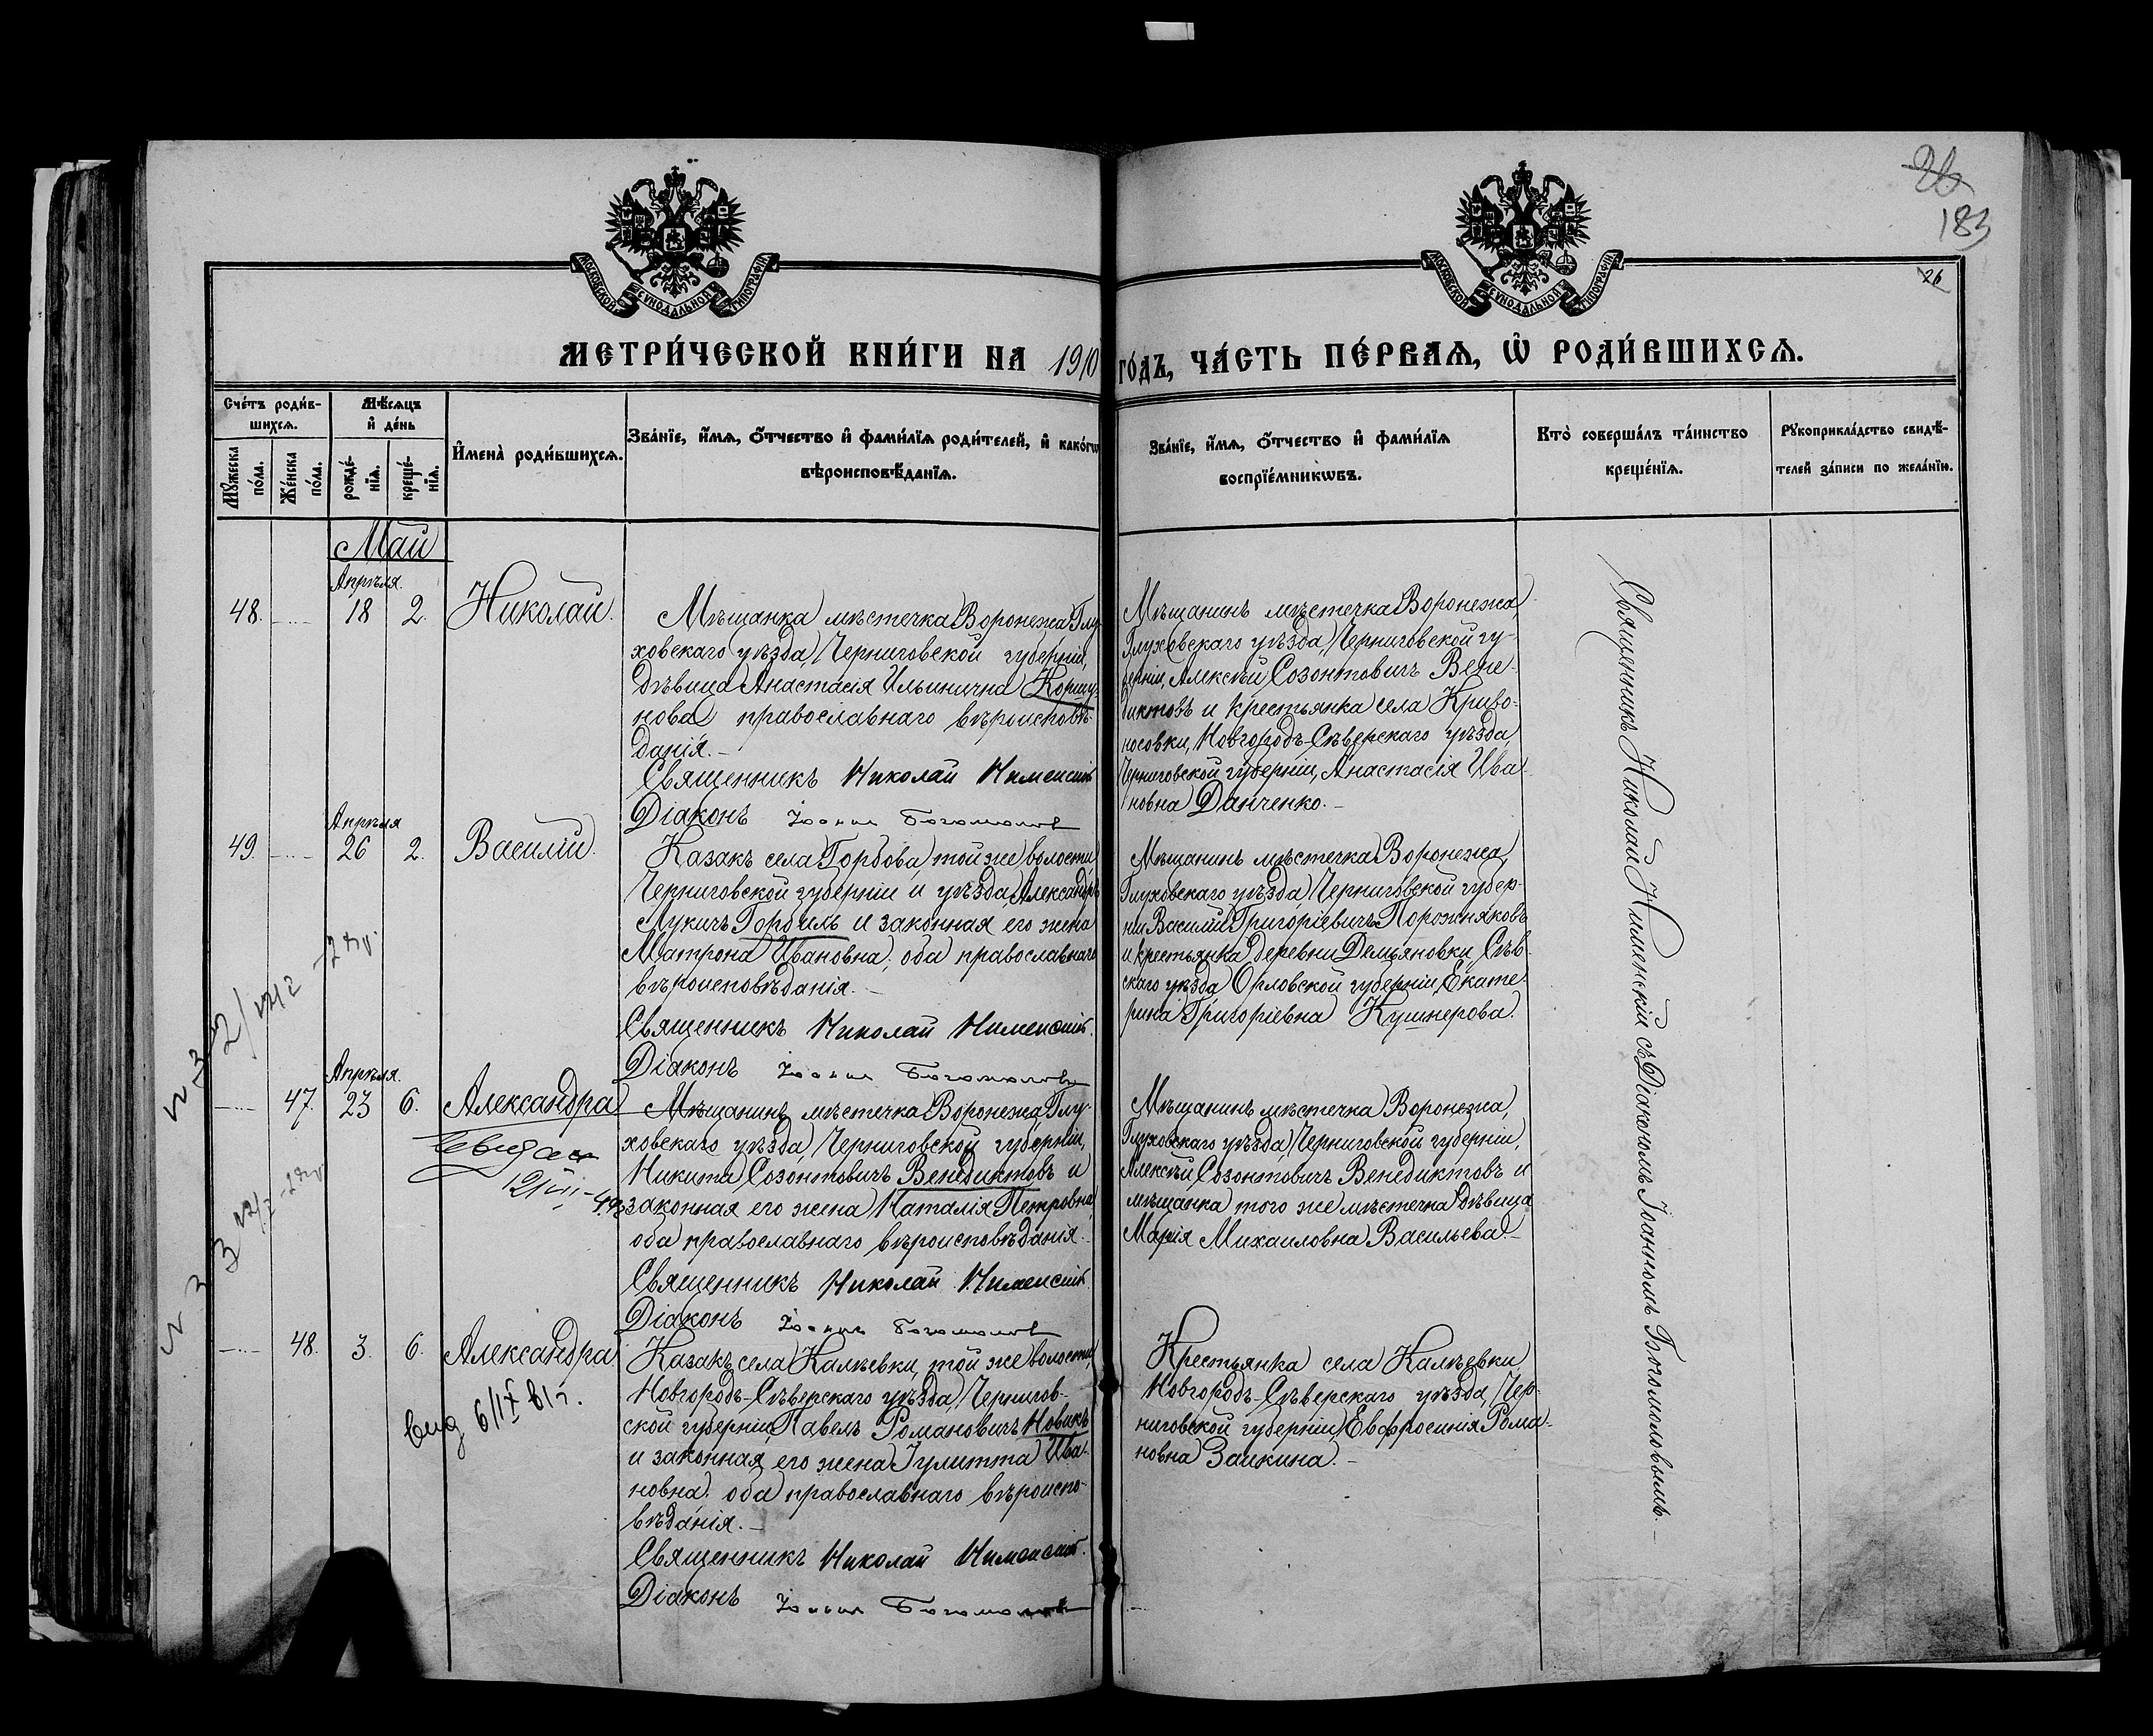 26
183
26
МОСКОВСКОЙ СУНОДАЛЬНОЙ ТИПОГРАФІИ
МОСКОВСКОЙ СУНОДАЛЬНОЙ ТИПОГРАФІИ
МЕТРИ́ЧЕСКОЙ КНИ́ГИ НА 1910 ГО́ДЪ, ЧА́СТЬ ПЕ́РВАѦ, Ѡ҆ РОДИ́ВШИХСѦ.
Сче́тъ роди́в-
шихсѧ.
Мꙋ́жеска по́ла.
Же́нска по́ла.
Мѣ́сѧцъ
и҆ де́нь
рожде́-
нїѧ.
креще́-
нїѧ.
И҆мена̀ роди́вшихсѧ.
Зва́нїе, и҆́мѧ, ѻ҆́тчество и҆ фами́лїѧ роди́телей, и҆ како́гѡ
вѣроисповѣ́данїѧ.
Зва́нїе, и҆́мѧ, ѻ҆́тчество и҆ фами́лїѧ
воспрїе́мникѡвъ.
Кто̀ соверша́лъ та́инство
креще́нїѧ.
Рꙋкоприкла́дство свидѣ́-
телей за́писи по жела́нїю.
Май
Апрѣля.
48. 18 2. Николай.
Мѣщанка мѣстечка Воронежа Глу-
ховскаго уѣзда, Черниговской губерніи,
дѣвица Анастасія Ильинична Коршу-
нова православнаго вѣроисповѣ-
данія.
Священникъ Николай Нименскій
Діаконъ Іоаннъ Богомоловъ
Мѣщанинъ мѣстечка Воронежа,
Глуховскаго уѣзда, Черниговской гу-
берніи, Алексѣй Созонтовичъ Вене-
диктовъ и крестьянка села Криво-
носовки, Новгородъ-Сѣверскаго уѣзда
Черниговской губерніи, Анастасія Ива-
новна Данченко.
Апрѣля
49. 26 2. Василій.
Казакъ села Горбова, той же волости
Черниговской губерніи и уѣзда, Александръ
Лукичъ Горбиль и законная его жена
Матрона Ивановна; оба православнаго
вѣроисповѣданія.
Священникъ Николай Нименскій.
Діаконъ Іоаннъ Богомоловъ
Мѣщанинъ мѣстечка Воронежа,
Глуховскаго уѣзда, Черниговской губер-
ніи Василій Григоріевичъ Порожняковъ
и крестьянка деревни Демьяновки, Сѣв-
скаго уѣзда Орловской губерніи, Екате-
рина Григоріевна Кушнерова.
Апрѣля.
47. 23 6. Александра
12/VII-49
Мѣщанинъ мѣстечка Воронежа, Глу-
ховскаго уѣзда, Черниговской губерніи,
Никита Созонтовичъ Венедиктовъ и
законная его жена Наталія Петровна
оба православнаго вѣроисповѣданія.
Священникъ Николай Нименскій.
Діаконъ Іоаннъ Богомоловъ
Мѣщанинъ мѣстечка Воронежа,
Глуховскаго уѣзда, Черниговской губерніи,
Алексѣй Созонтовичъ Венедиктовъ и
мѣщанка того же мѣстечка дѣвица
Марія Михаиловна Васильева
48. 3. 6. Александра
Казакъ села Калѣевки, той же волости,
Новгородъ-Сѣверскаго уѣзда, Чернигов-
ской губерніи, Павелъ Романовичъ Новикъ
и законная его жена Іулитта Ива-
новна; оба православнаго вѣроиспо-
вѣданія.
Священникъ Николай Нименскій.
Діаконъ Іоаннъ Богомоловъ
Крестьянка села Калѣевки
Новгородъ-Сѣверскаго уѣзда, Чер-
ниговской губерніи, Евфросинія Рома-
новна Заикина.
Священникъ Николай Нименскій съ Діакономъ Іоанномъ Богомоловымъ.